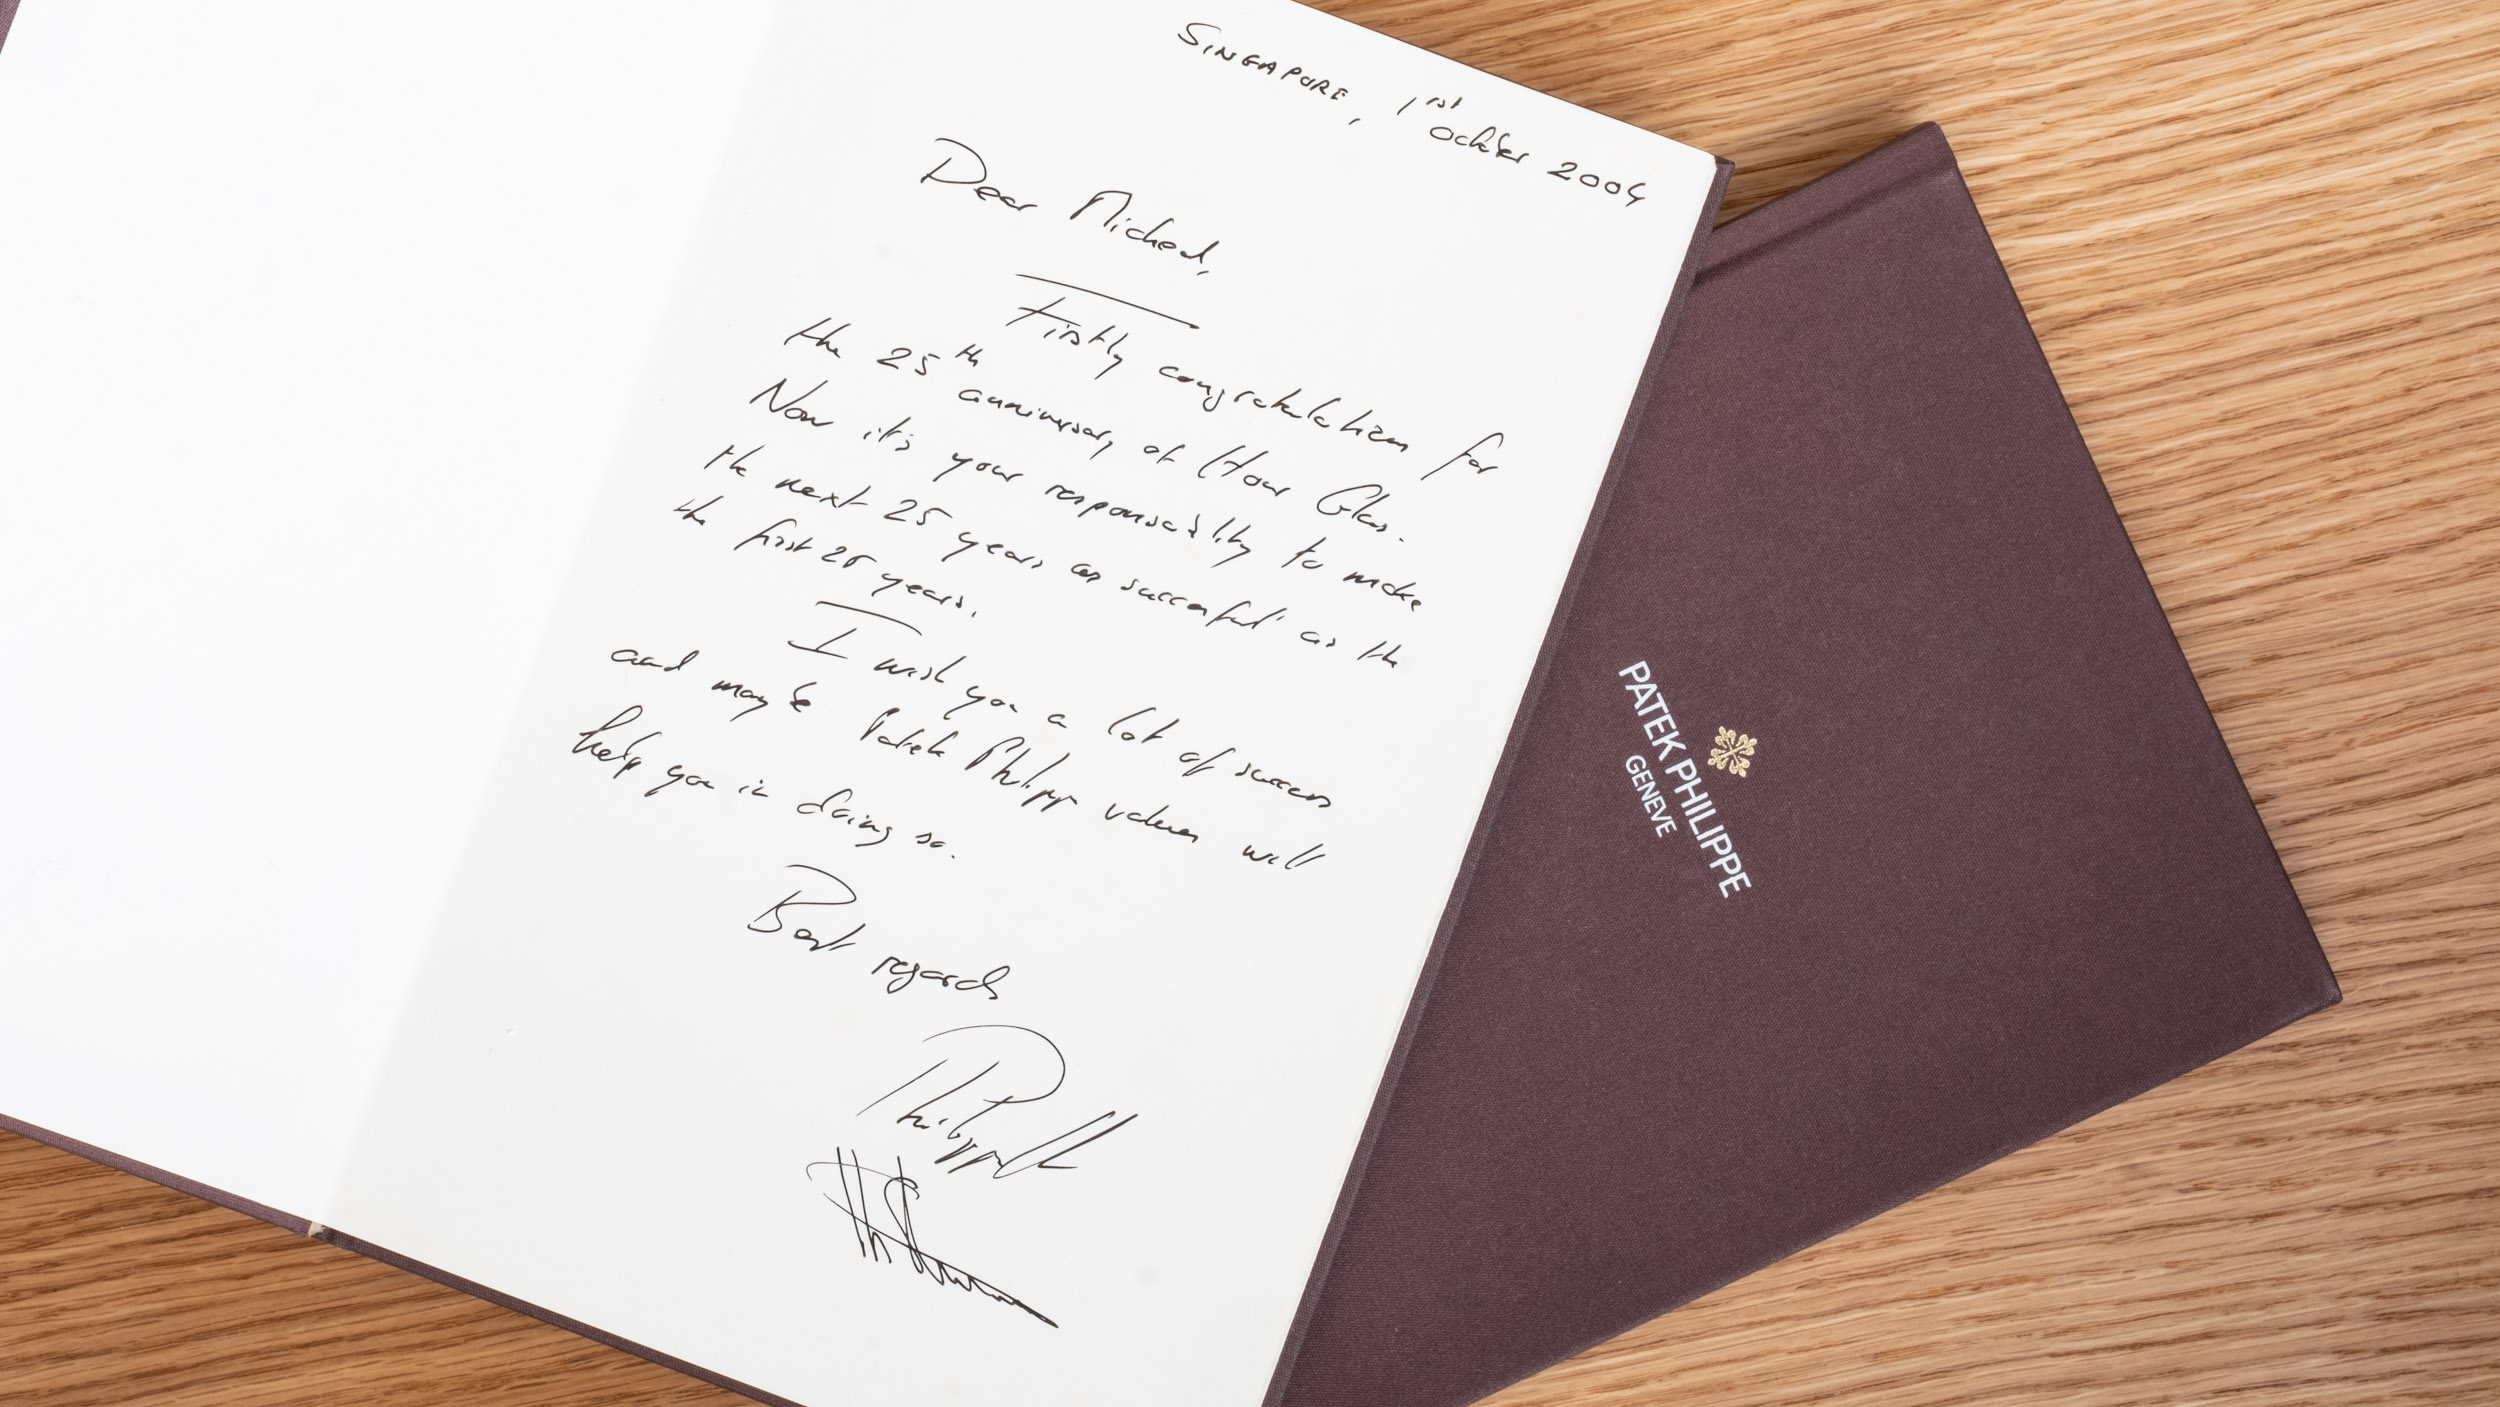 SINGAPORE, 1st October 2004
Dear Michael,
Firstly congratulations for
the 25th anniversary of Hour Glass.
Now it's your responsability to make
the next 25 years as successful as the
the first 25 years.
I wish you a lot of success
and maybe Patek Philippe values will
help you in doing so.
Best regards
Philippe
PATEK PHILIPPE
GENEVE